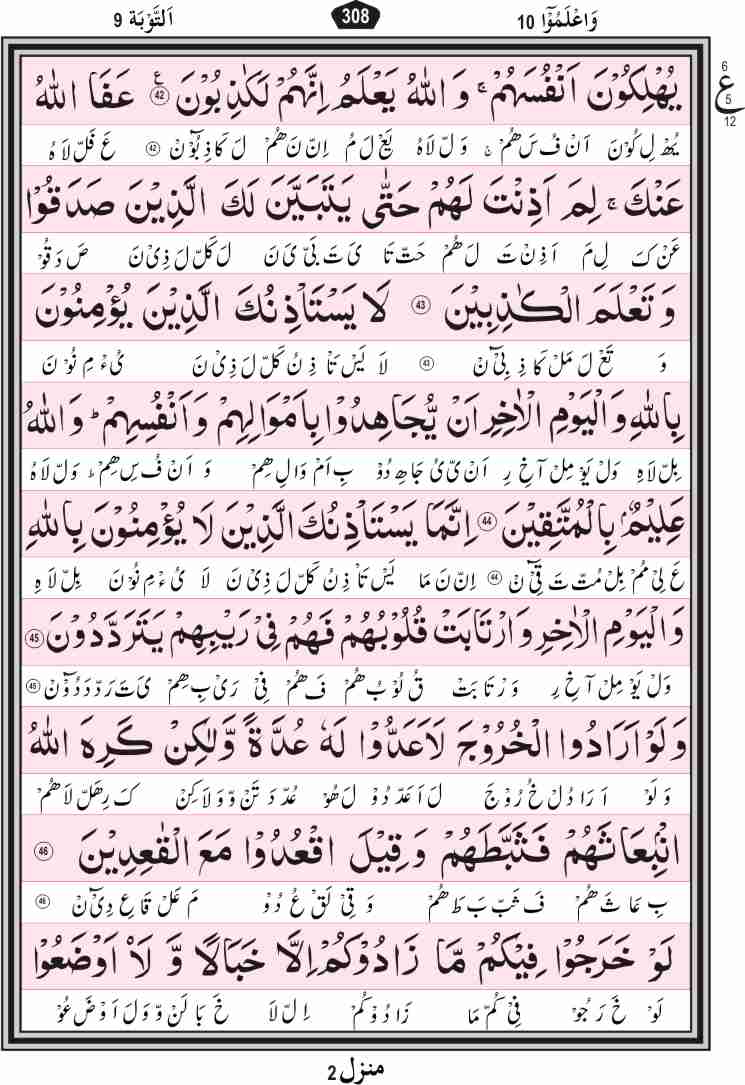 وَاعْلَمُوْٓا 10 308 اَلتَّوْبَة 9
يُهْلِكُوْنَ اَنْفُسَهُمْ ۚ وَاللّٰهُ يَعْلَمُ اِنَّهُمْ لَكٰذِبُوْنَ ﴿42﴾ عَفَا اللّٰهُ
ع 6 5 12
يُهْ لِ كُوْنَ اَنْ فُ سَ هُمْ ۚ وَلّ لَاهُ يَعْ لَ مُ اِنّ نَ هُمْ لَ كَا ذِ بُوْٓنْ ﴿42﴾ عَ فَلّ لَا هُ
عَنْكَ ۚ لِمَ اَذِنْتَ لَهُمْ حَتّٰى يَتَبَيَّنَ لَكَ الَّذِيْنَ صَدَقُوْا
عَنْ كَ لِ مَ اَ ذِنْ تَ لَ هُمْ حَتّ تَا ىَ تَ بَىّ ىَ نَ لَ كَلّ لَ ذِىْ نَ صَ دَ قُوْ
وَتَعْلَمَ الْكٰذِبِيْنَ ﴿43﴾ لَا يَسْتَاْذِنُكَ الَّذِيْنَ يُؤْمِنُوْنَ
وَ تَعْ لَ مَلْ كَا ذِ بِىْٓ نْ ﴿43﴾ لَا يَسْ تَاْ ذِ نُ كَلّ لَ ذِىْ نَ ىُءْ مِ نُوْ نَ
بِاللّٰهِ وَالْيَوْمِ الْاٰخِرِ اَنْ يُّجَاهِدُوْا بِاَمْوَالِهِمْ وَاَنْفُسِهِمْ ؕ وَاللّٰهُ
بِلّ لَاهِ وَلْ يَوْ مِلْ آ خِ رِ اَنْ ىّ ىُ جَا هِ دُوْ بِ اَمْ وَا لِ هِمْ وَ اَنْ فُ سِ هِمْ ؕ وَلّ لَاهُ
عَلِيْمٌۢ بِالْمُتَّقِيْنَ ﴿44﴾ اِنَّمَا يَسْتَاْذِنُكَ الَّذِيْنَ لَا يُؤْمِنُوْنَ بِاللّٰهِ
عَ لِىْ مُمْ بِلْ مُتّ تَ قِىْٓ نْ ﴿44﴾ اِنّ نَ مَا يَسْ تَاْ ذِ نُ كَلّ لَ ذِىْ نَ لَا ىُءْ مِ نُوْ نَ بِلّ لَا هِ
وَالْيَوْمِ الْاٰخِرِ وَارْتَابَتْ قُلُوْبُهُمْ فَهُمْ فِيْ رَيْبِهِمْ يَتَرَدَّدُوْنَ ﴿45﴾
وَلْ يَوْ مِلْ آ خِ رِ وَرْ تَا بَتْ قُ لُوْ بُ هُمْ فَ هُمْ فِىْ رَىْ بِ هِمْ ىَ تَ رَدّ دَ دُوْٓ نْ ﴿45﴾
وَلَوْ اَرَادُوا الْخُرُوْجَ لَاَعَدُّوْا لَهٗ عُدَّةً وَّلٰكِنْ كَرِهَ اللّٰهُ
وَ لَوْ اَ رَا دُلْ خُ رُوْ جَ لَ اَ عَدّ دُوْ لَ هُوْ عُدّ دَ تَنْ وّ وَ لَا كِنْ كَ رِهَلّ لَا هُمْ
انْۢبِعَاثَهُمْ فَثَبَّطَهُمْ وَقِيْلَ اقْعُدُوْا مَعَ الْقٰعِدِيْنَ ﴿46﴾
بِ عَا ثَ هُمْ فَ ثَبّ بَ طَ هُمْ وَ قِىْ لَقْ عُ دُوْ مَ عَلْ قَا عِ دِىْٓ نْ ﴿46﴾
لَوْ خَرَجُوْا فِيْكُمْ مَّا زَادُوْكُمْ اِلَّا خَبَالًا وَّ لَا۟اَوْضَعُوْا
لَوْ خَ رَ جُوْ فِىْ كُمْ مَّا زَا دُوْ كُمْ اِلّ لَا خَ بَا لَنْ وّ وَ لَ اَوْ ضَ عُوْ
منزل 2